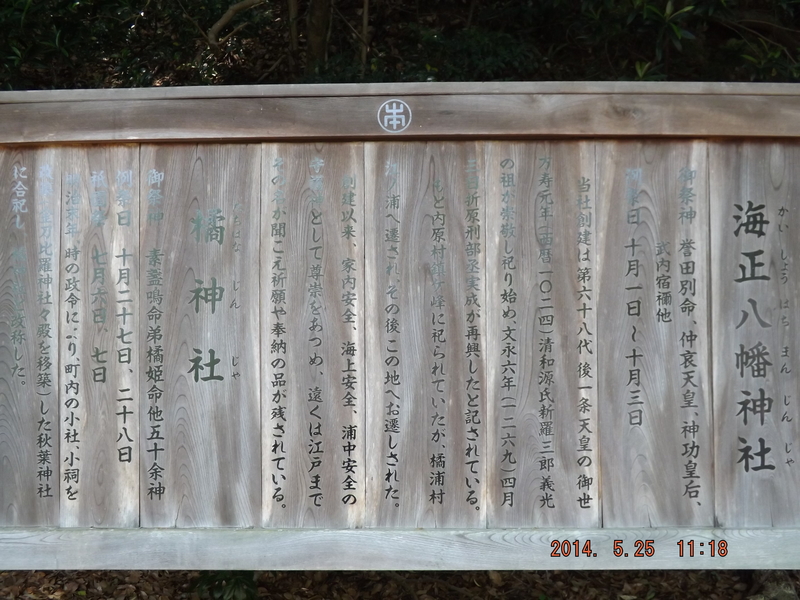 海正八幡神社
かいしょうはちまんじんじゃ
御祭神 誉田別命、仲哀天皇、神功皇后、
武内宿禰他
例祭日 十月一日〜十月三日
当社創建は第六十八代 後一条天皇の御世
万寿元年(西暦一〇二四)清和源氏新羅三郎義光
の祖が崇敬し祀り始め、文永六年(一二六九)四月
三日折原刑部丞実成が再興したと記されている。
もと内原村 ヶ峰に祀られていたが、橘浦村
浦へ遷され、その後この地へお遷しされた。
創建以来、家内安全、海上安全、浦中安全の
守 として尊崇をあつめ、遠くは江戸まで
その名が聞こえ祈願や奉納の品が残されている。
橘神社
たちばなじんじゃ
御祭神 素盞鳴命弟橘姫命他五十余神
例祭日 十月二十七日、二十八日
祇園 七月六日、七日
明治末年、時の政令により、町内の小社、小祠を
刀比羅神社々殿を移築)した秋葉神社
に合祀し、 改称した。
2014. 5.25 11:18